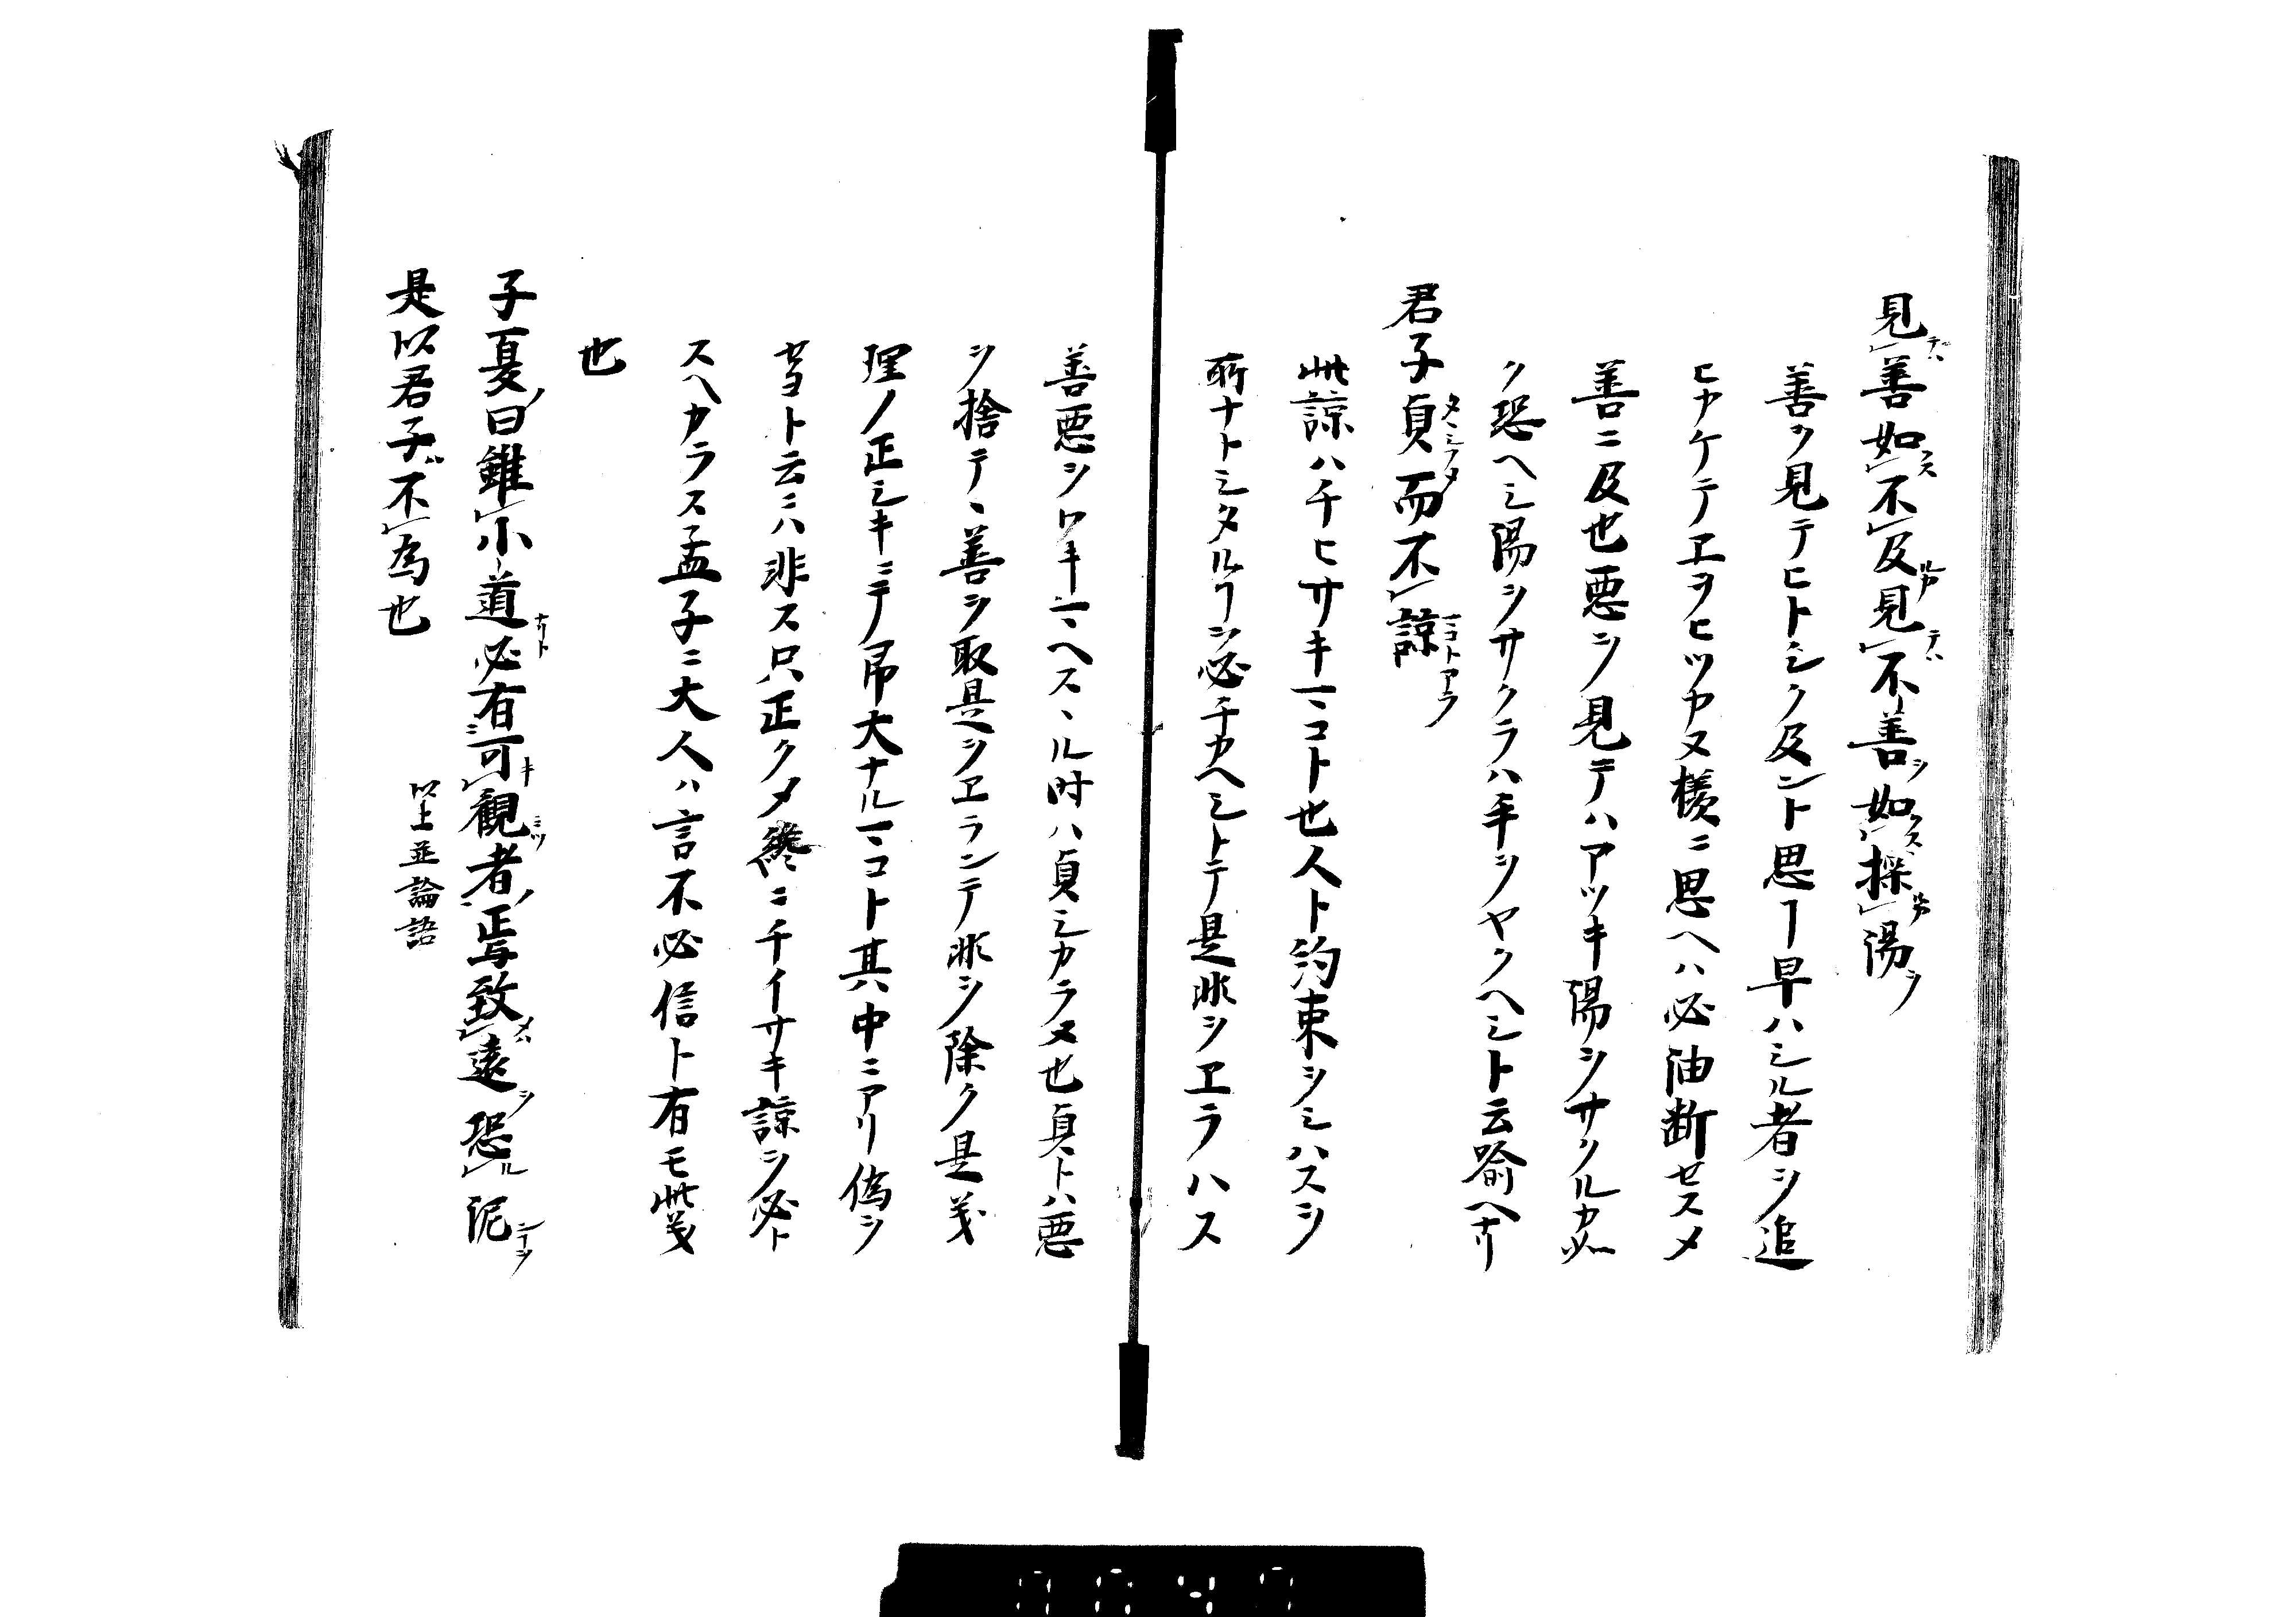 見善如不及見不善如探湯
善ヲ見テヒトシク及ント思ヿ早ハシル者ヲ追
ヒカケテヱヲヒツカヌ様ニ思ヘハ必油断セスメ
善ニ及也悪ヲ見テハアツキ陽ヲサクルカ如
ク恐ヘシ陽ヲサクラハ手ヲヤクヘシト云喩ヘナリ
君子貞而不諒
此諒ハチヒサキマコト也人ト約束ヲシハスシ
所ナトシタルヿヲ必チカヘシトテ是非ヲヱラハス
善悪ヲワキマヘスヽル時ハ貞シカラヌ也貞トハ悪
ヲ捨テヽ善ヲ取是ヲヱランテ非ヲ除ク是義
理ノ正シキニテ大ナルマコト其中ニアリ偽ヲ
セヨト云ニハ非ス只正クメ終ニチイサキ諒ヲ必ト
スヘカラス孟子ニ大人ハ言不必信ト有モ此義
也
子夏曰雖小道必有可観者焉致遠恐泥
是以君子不為也
以上並論語